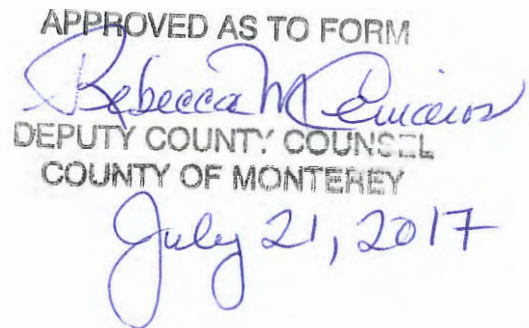 APPROVED AS TO FORM
Rebecca M
DEPUTY COUNTY COUNSEL
COUNTY OF MONTEREY
July 21, 2017